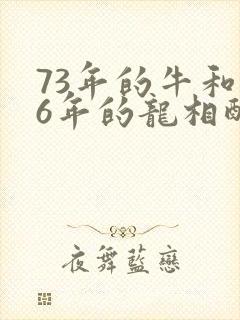 73年的牛和
6年的龍相
夜舞藍戀